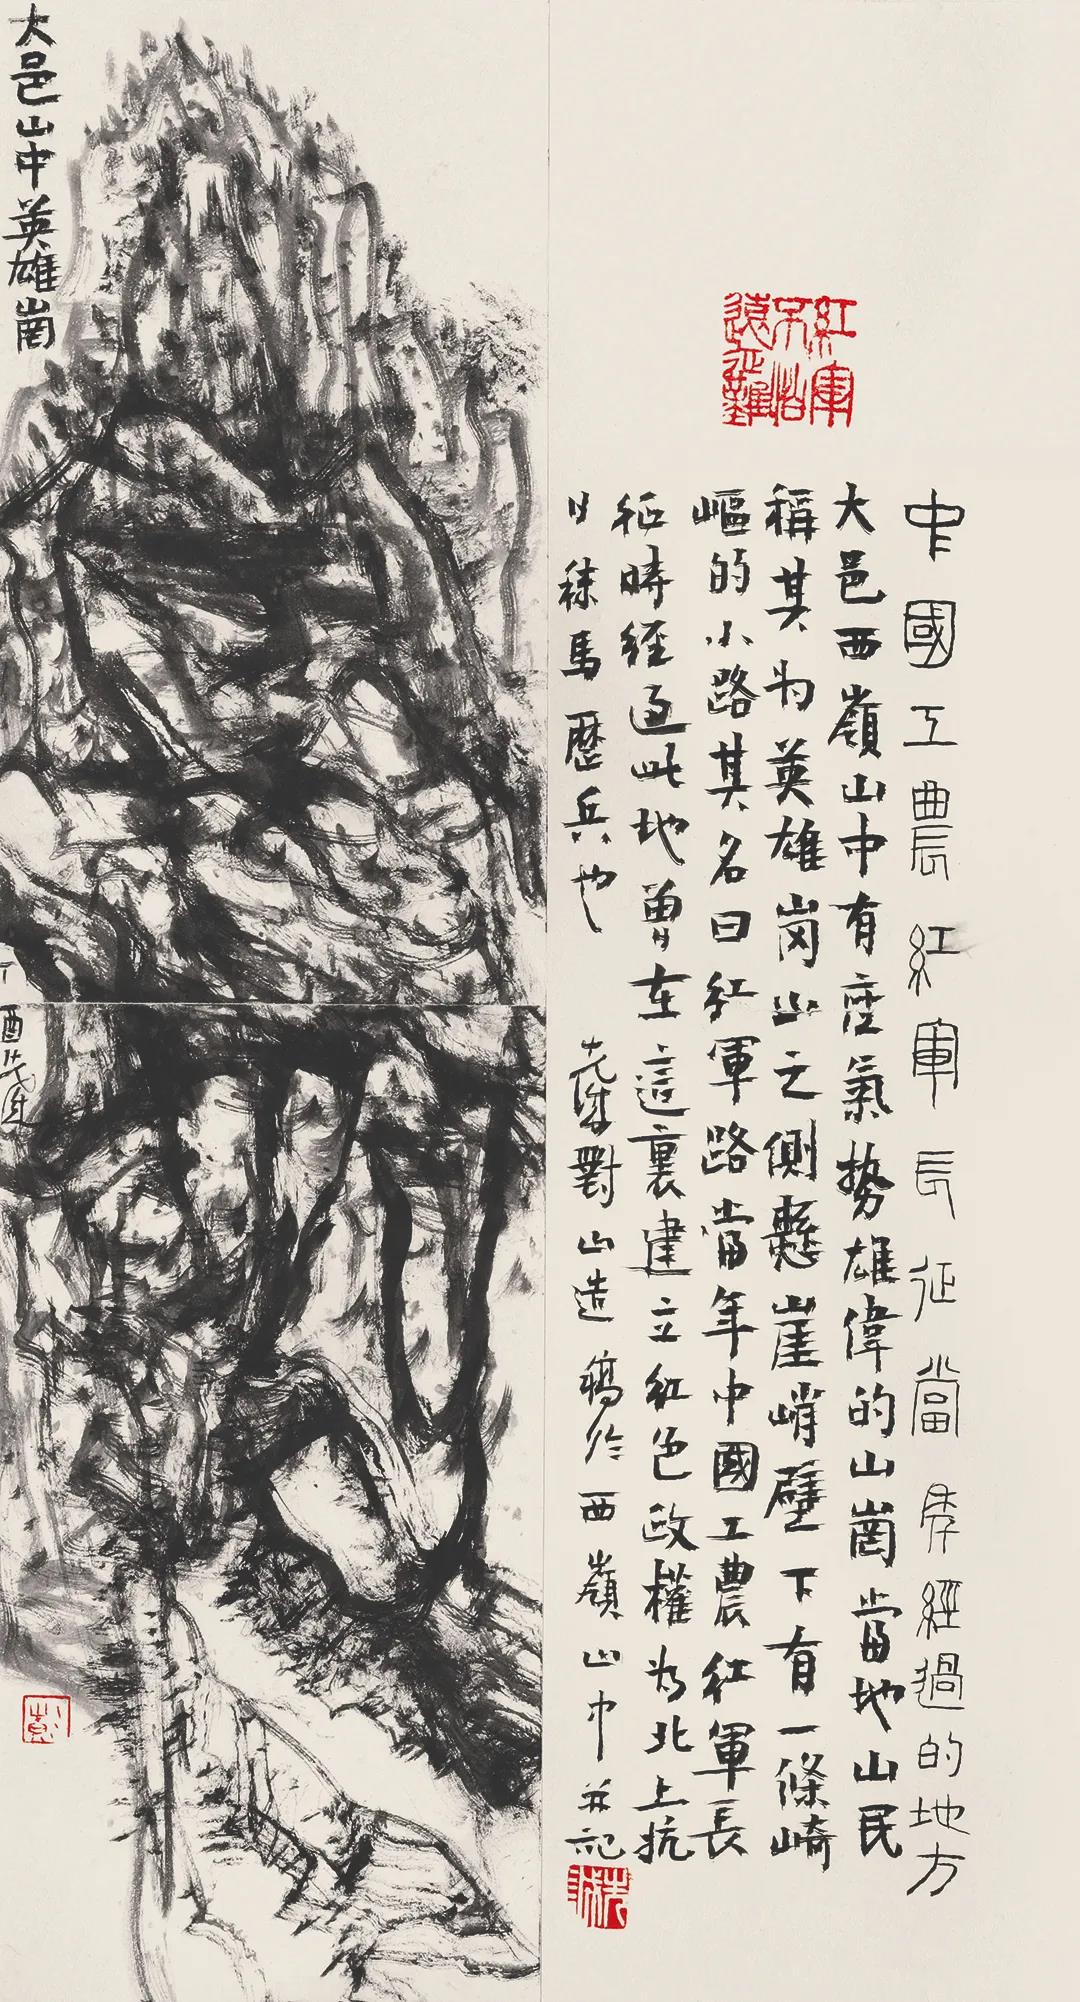 紅軍不怕遠征難
中國工農紅軍長征當年經過的地方
大邑西嶺山中有座氣势雄偉的山崗當地山民
稱其为英雄岗山之側懸崖峭壁下有一條崎
嶇的小路其名曰紅軍路當年中國工農紅軍長
征時經過此地曾在這裏建立紅色政權为北上抗
日秣馬歷兵也 對山造稿於西嶺山中并記
大邑山中英雄崗
丁酉
彭